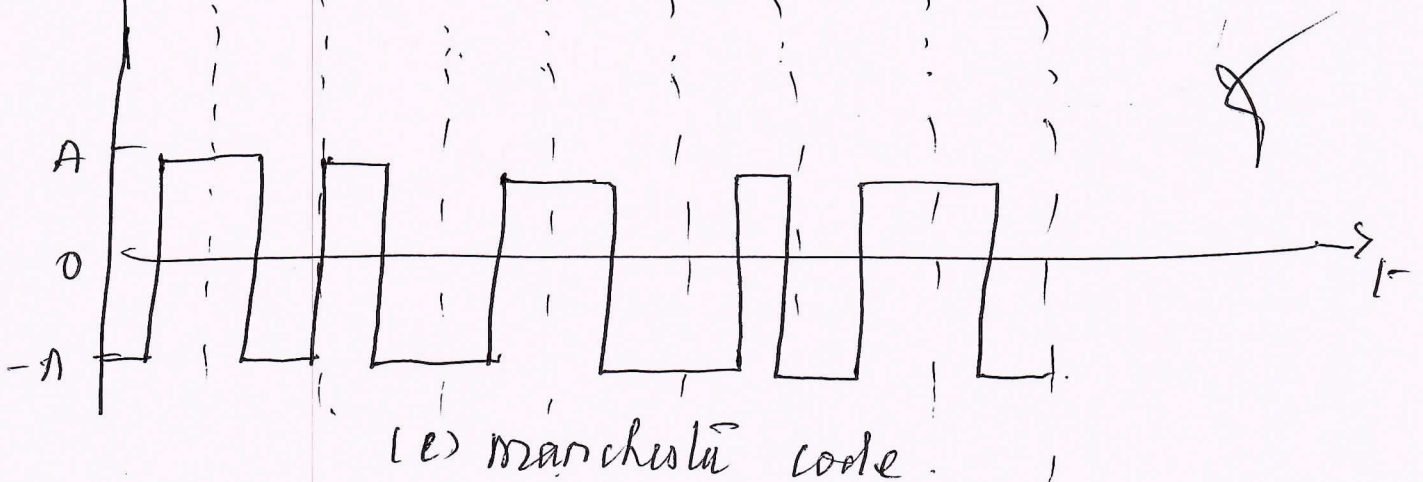 A
0
-A
t
(e) manchester code.